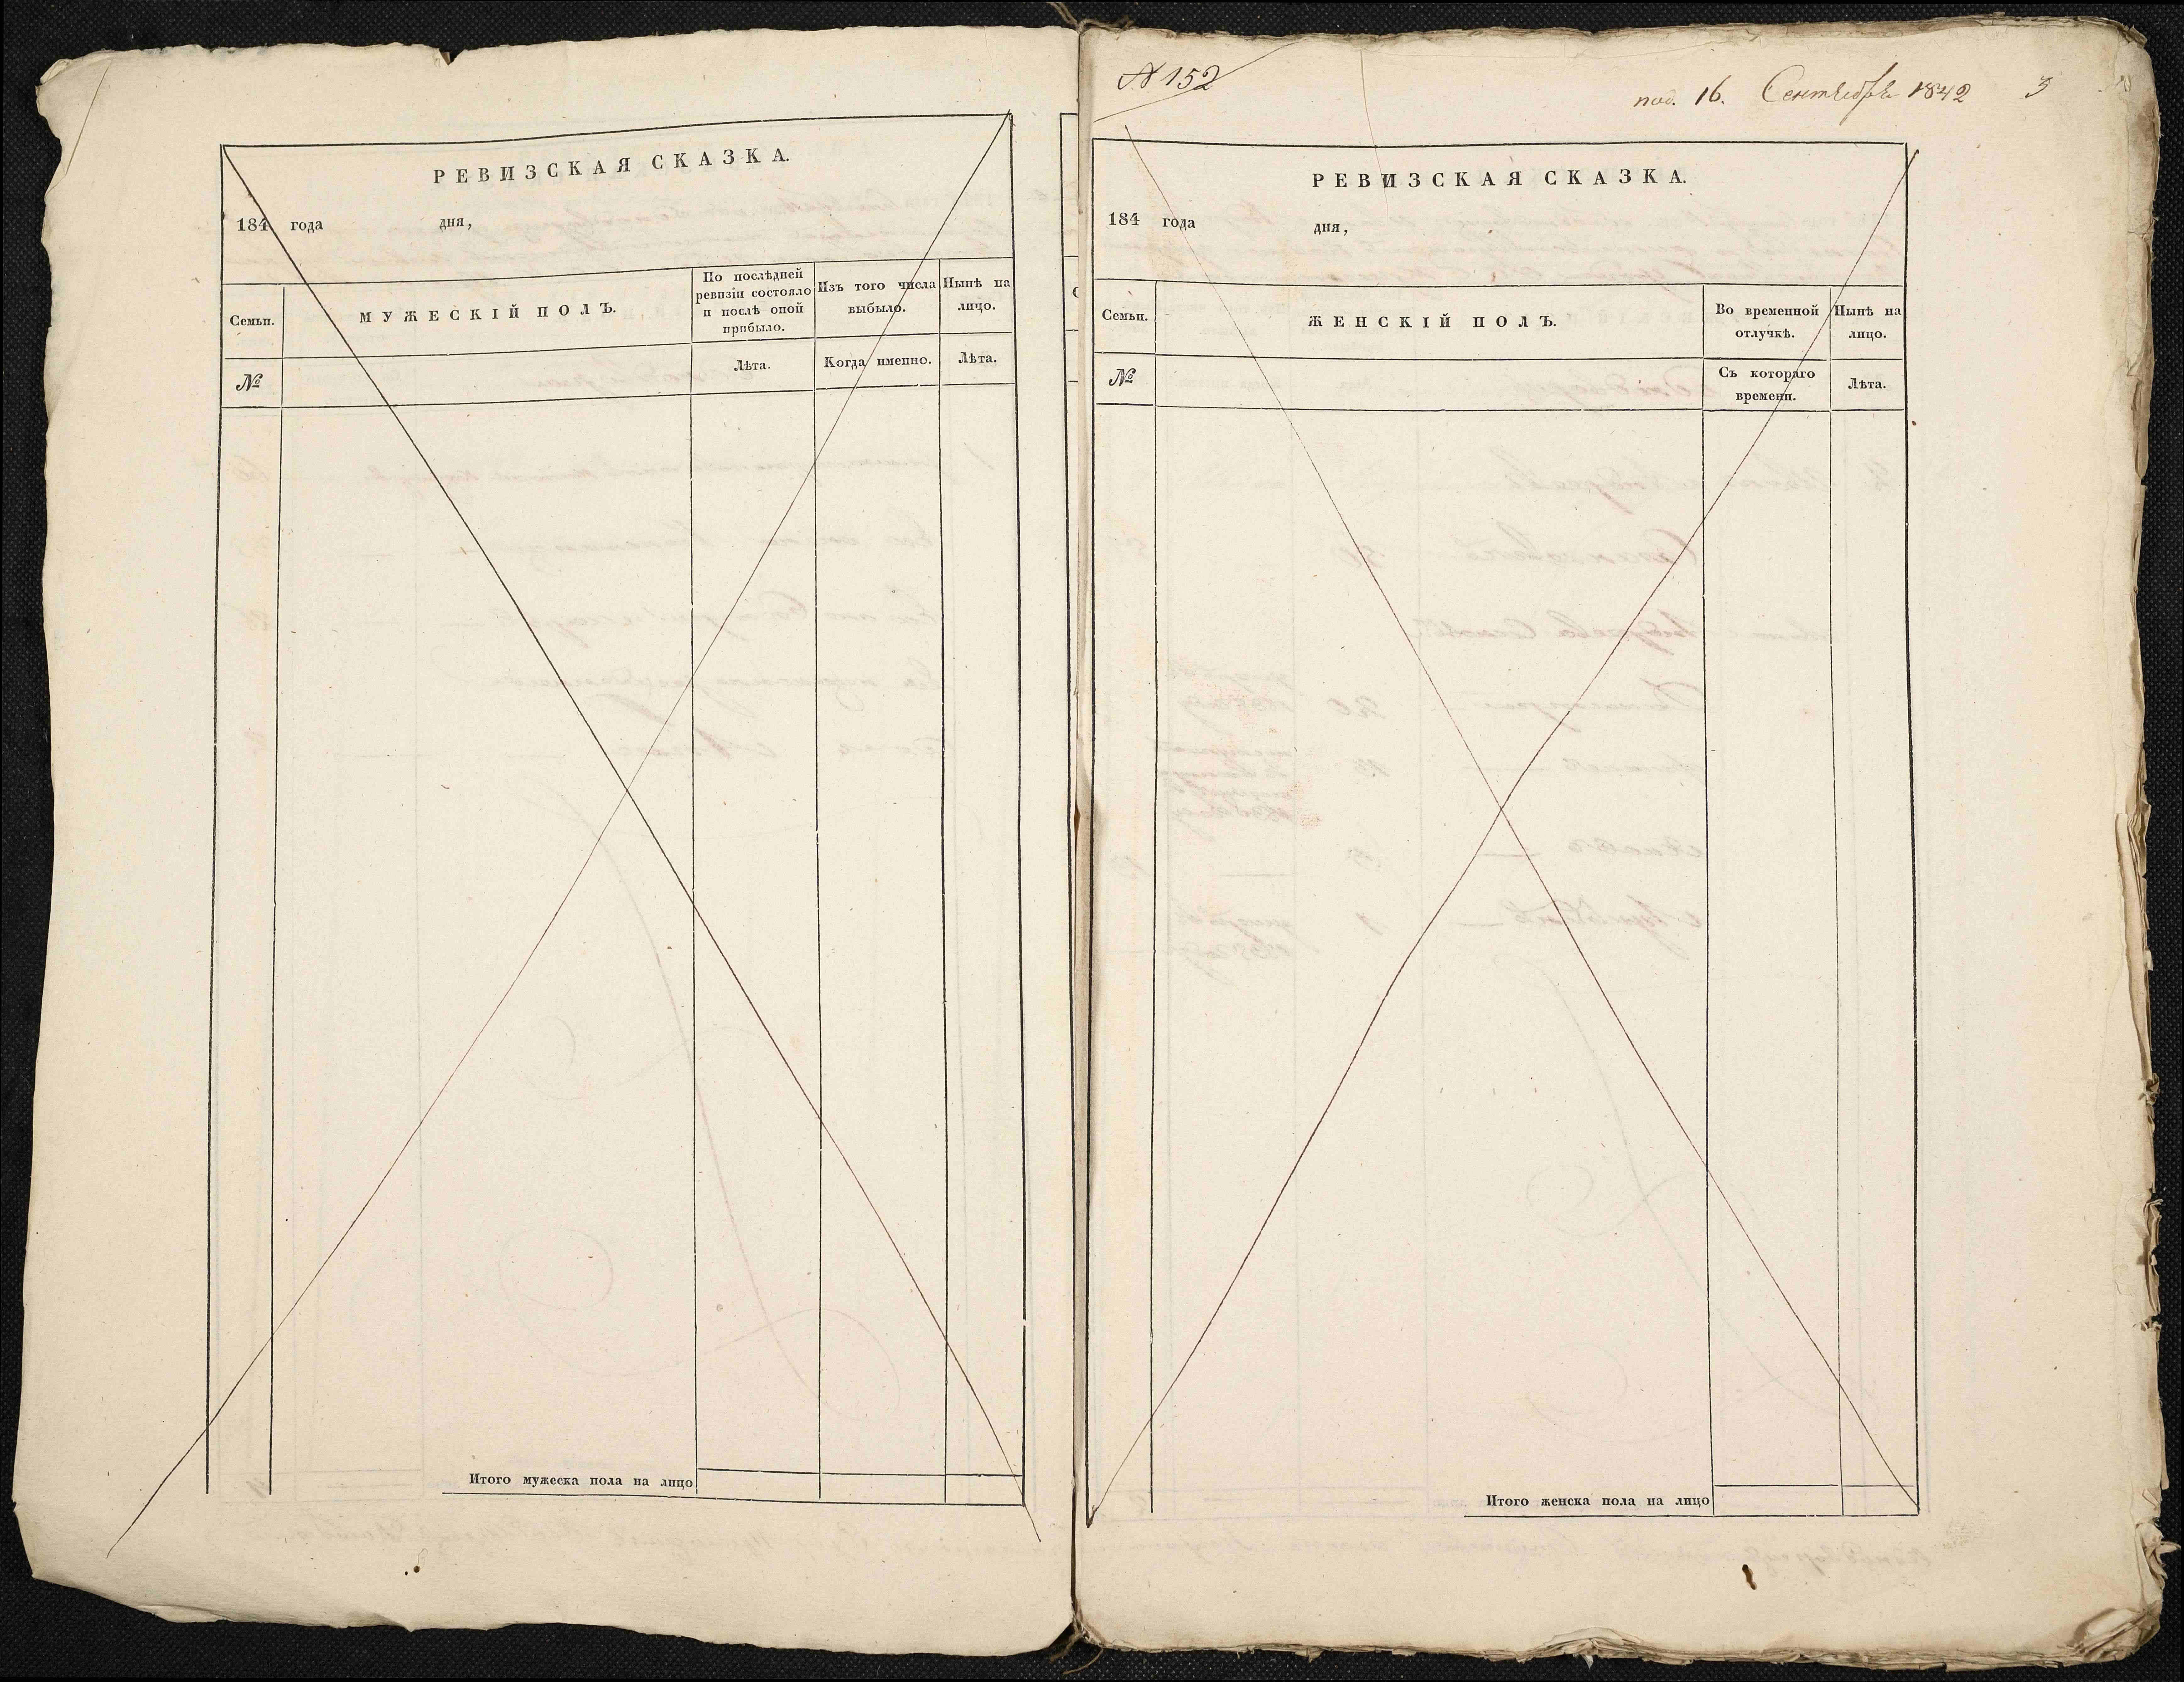 РЕВИЗСКАЯ СКАЗКА.
184 года дня,
Семьи.
МУЖЕСКІЙ ПОЛЪ.
По послѣдней
ревизіи состояло
и послѣ оной
прибыло.
Изъ того числа
выбыло.
Нынѣ на
лицо.
№
Лѣта.
Когда именно.
Лѣта.
Итого мужеска пола на лицо
№ 152
под. 16. Сентября 1842
3
РЕВИЗСКАЯ СКАЗКА.
184 года дня,
Семьи.
ЖЕНСКІЙ ПОЛЪ.
Во временной
отлучкѣ.
Нынѣ на
лицо.
№
Съ котораго
времени.
Лѣта.
Итого женска пола на лицо